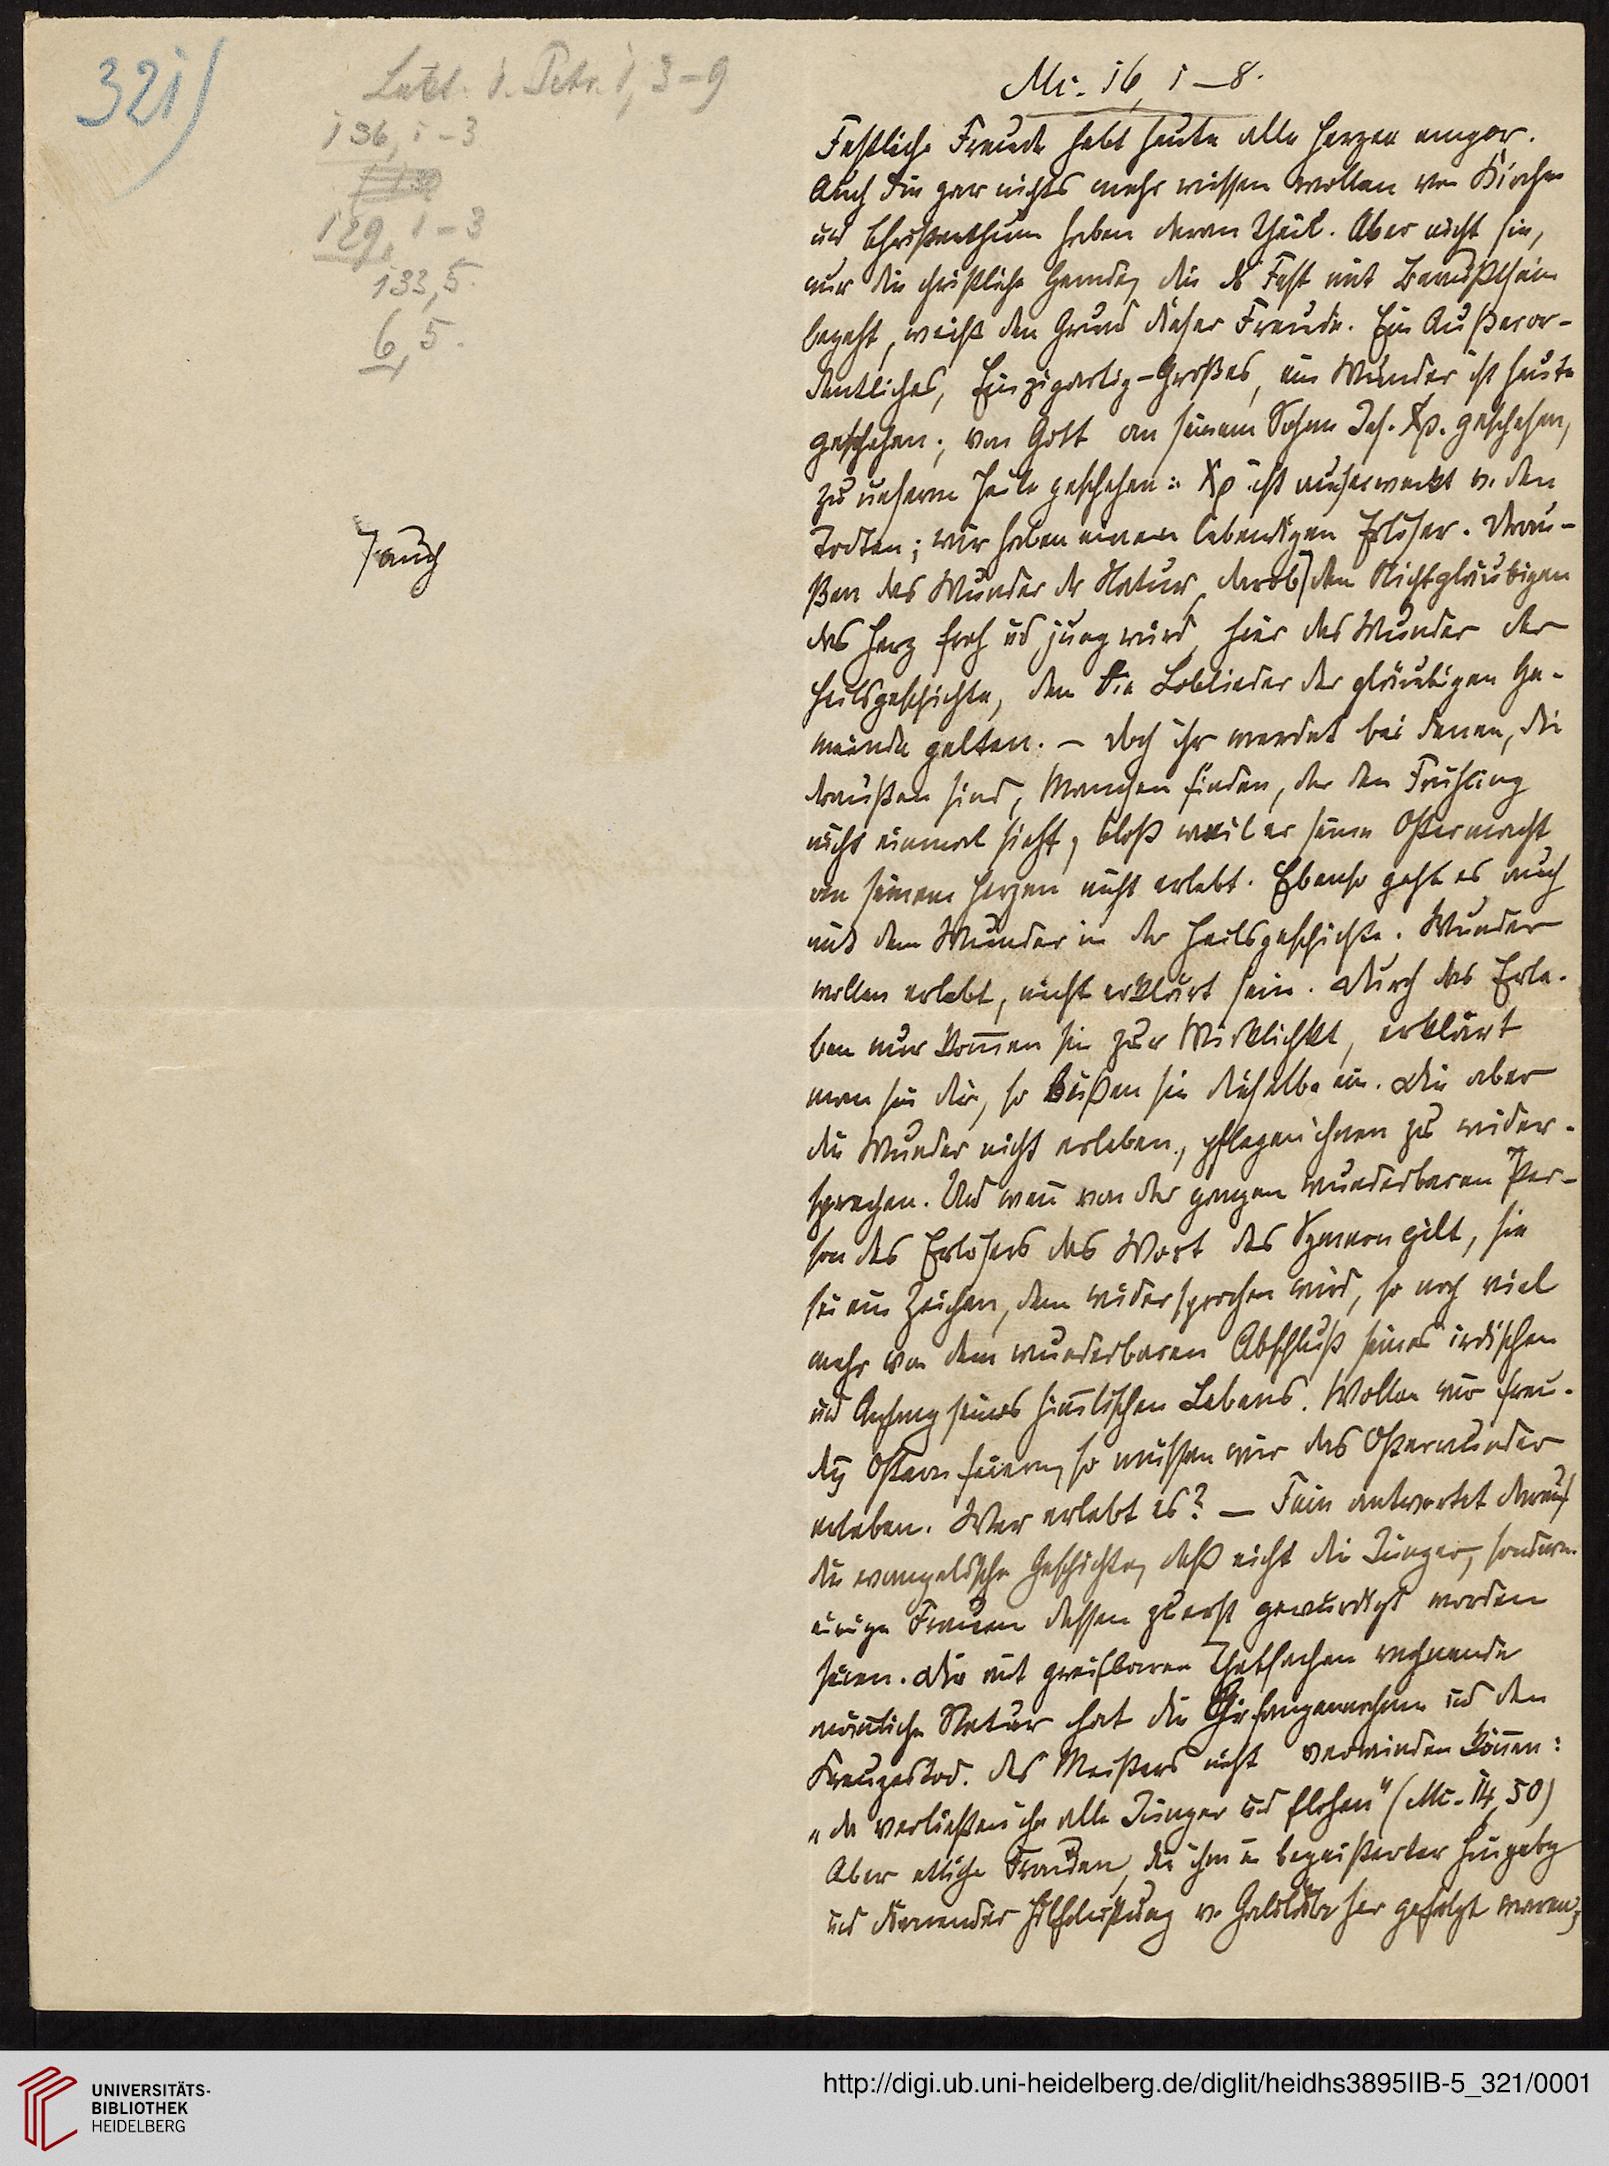 321)
Lect. 1. Petr. 1, 3-9
136, 1-3
129, 1-3
133, 5.
6, 5.
Mc. 16, 1-8.
Festliche Freude hebt heute alle Herzen empor.
Auch die gar nichts mehr wissen wollen von Kirche
und Christenthum haben daran Theil. Aber nicht sie,
nur die christliche Gemeinde, die das Fest mit Bewußtsein
begeht, weiß den Grund dieser Freude. Ein Außeror-
dentliches, Einzigartig-Großes, ein Wunder ist heute
geschehen; von Gott an seinem Sohne Jes. Xp. geschehen,
zu unserm Heile geschehen: Xp ist auferweckt v. den
Todten; wir haben einen lebendigen Erlöser. Drau-
ßen das Wunder der Natur, darob ⌈ den Nichtgläubigen
⌈auch
das Herz froh und jung wird, hier das Wunder der
Heilsgeschichte, dem die Loblieder der gläubigen Ge-
meinde gelten. – Doch ihr werdet bei denen, die
draußen sind, Manchen finden, der den Frühling
nicht einmal sieht, bloß weil er seine Ostermacht
an seinem Herzen nicht erlebt. Ebenso geht es auch
mit dem Wunder in der Heilsgeschichte. Wunder
wollen erlebt, nicht erklärt sein. Durch das Erle-
ben nur kom̄en sie zur Wirklichkt, erklärt
man sie dir, so büßen sie dieselbe ein. Die aber
die Wunder nicht erleben, pflegen ihnen zu wider-
sprechen. Und wen̄ von der ganzen wunderbaren Per-
son des Erlösers das Wort des Symeon gilt, sie
sei ein Zeichen, dem widersprochen wird, so noch viel
mehr von dem wunderbaren Abschluß seines irdischen
und Anfang seines him̄lischen Lebens. Wollen wir freu-
dig Ostern feiern, so müssen wir das Osterwunder
erleben. Wer erlebt es? – Fein antwortet darauf
die evangelische Geschichte, daß nicht die Jünger, sondern
einige Frauen dessen zuerst gewürdigt worden
seien. Die mit greifbaren Thatsachen rechnende
män̄liche Natur hat die Gefangennahme und den
Kreuzestod des Meisters nicht verwinden kön̄en:
„da verließen ihn alle Jünger und flohen" (Mc. 14, 50)
Aber etliche Frauen, die ihm in begeisterter Hingebg
und dienender Hilfeleistung v. Galiläa her gefolgt waren,
UNIVERSITÄTS-
BIBLIOTHEK
HEIDELBERG
http://digi.ub.uni-heidelberg.de/diglit/heidhs3895IIB-5_321/0001